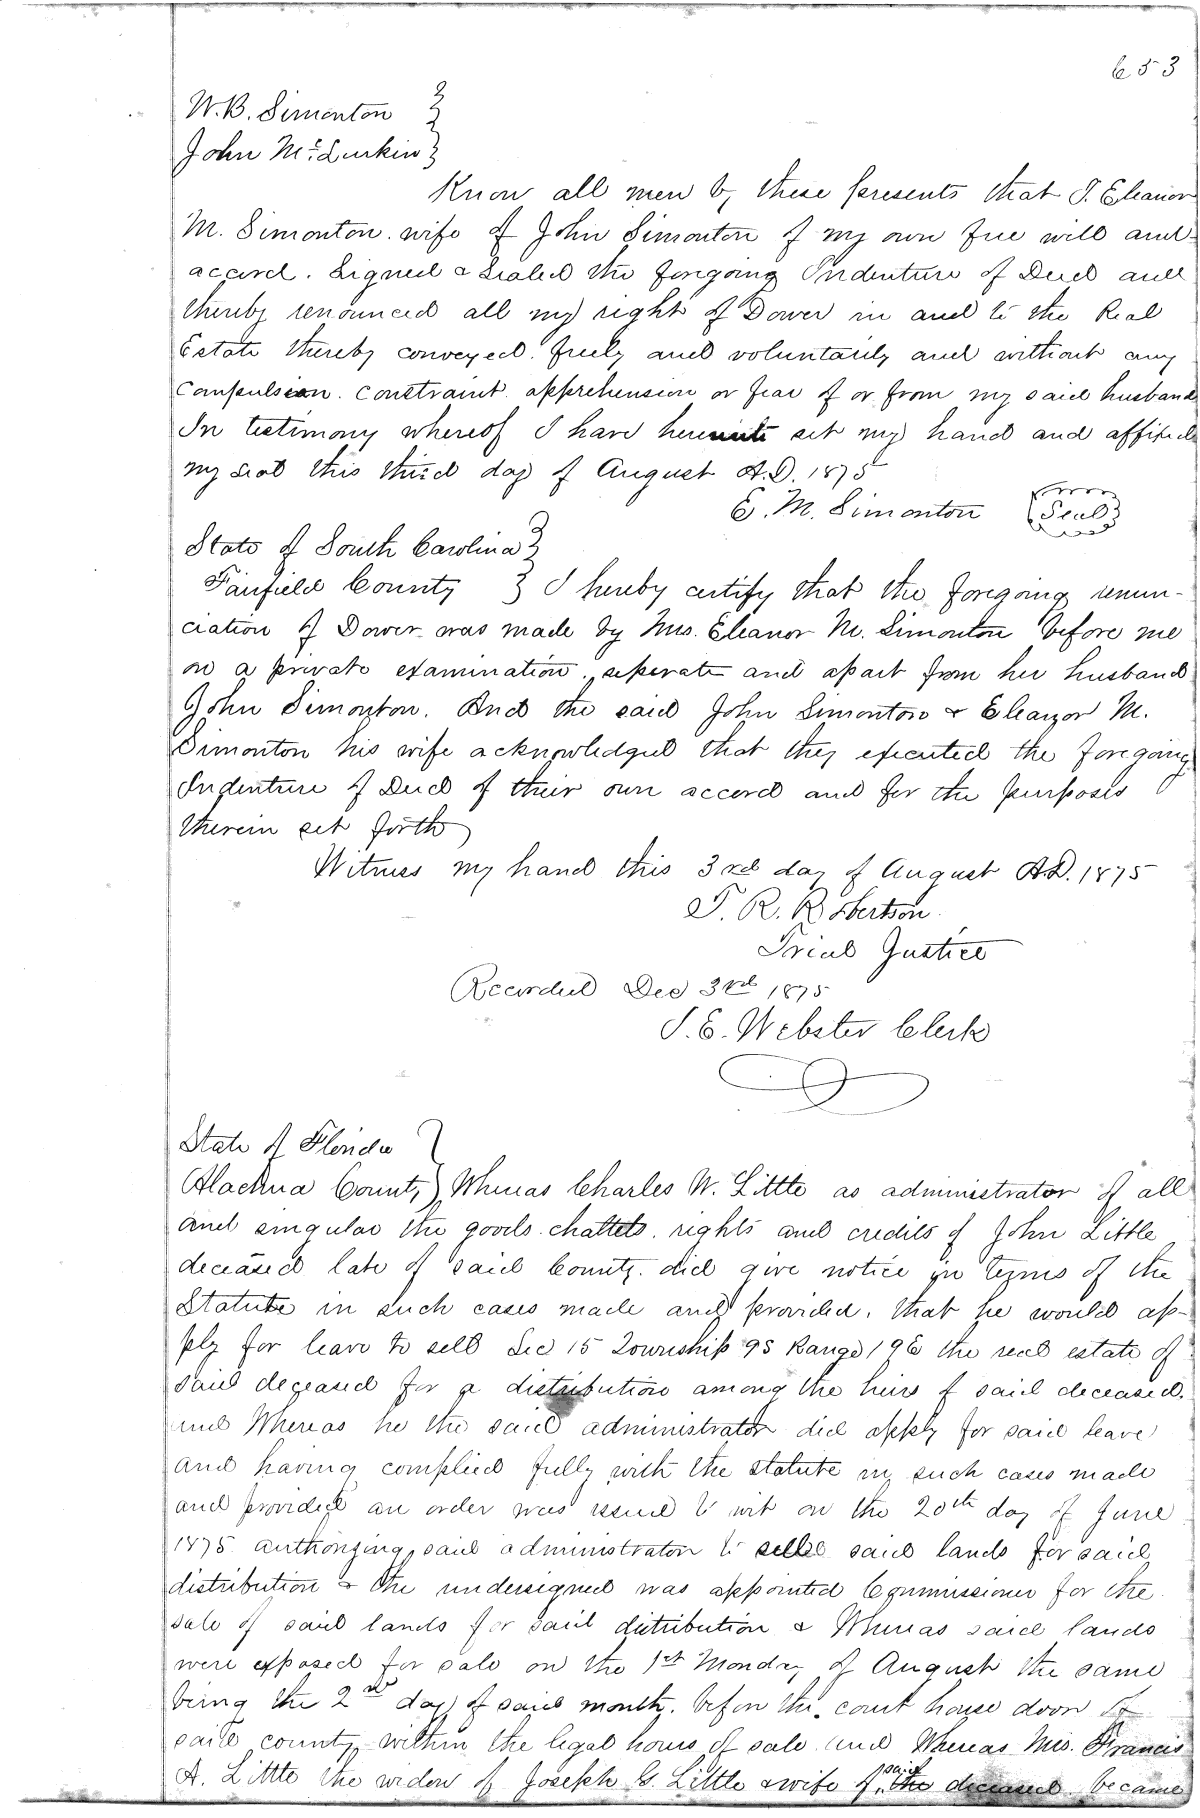 653
W. B. Simonton }
John Mc. Lurkin }
Know all men by these presents that I. Eleanor
M. Simonton. wife of John Simonton of my own free will and
accord. Signed & Sealed the foregoing Indenture of Deed and
thereby renounced all my right of Dower in and to the Real
Estate thereby conveyed. freely and voluntarily and without any
Compulsion. Constraint. apprehension or fear of or from my said husband
In testimony whereof I have hereunto set my hand and affixed
my seal this third day of August A.D. 1875
E. M. Simonton (Seal)
State of South Carolina }
Fairfield County } I hereby certify that the foregoing renun-
ciation of Dower was made by Mrs. Eleanor M. Simonton before me
on a private examination. seperate and apart from her husband
John Simonton. And the said John Simonton & Eleanor M.
Simonton his wife acknowledged that they executed the foregoing
Indenture of Deed of their own accord and for the purposes
therein set forth
Witness my hand this 3rd day of August A.D. 1875
T. R. Robertson.
Trial Justice
Recorded Dec 3rd 1875
S. E. Webster Clerk
State of Florida }
Alachua County } Whereas Charles W. Little as administrator of all
and singular the goods. chattets. rights and credits of John Little
deceased late of said County. did give notice in terms of the
Statute in such cases made and provided. that he would ap-
ply for leave to sell Sec 15 Township 9S Range 19E the real estate of
said deceased for a distribution among the heirs of said deceased.
and Whereas he the said administrator did apply for said leave
and having complied fully with the statute in such cases made
and provided an order was issued to wit on the 20th day of June
1875 authorizing said administrator to sell said lands for said
distribution & the undersigned was appointed Commissioner for the
sale of said lands for said distribution & Whereas said lands
were exposed for sale on the 1st Monday of August the same
being the 2nd day of said month. before the. court house door of
said county within the legal hours of sale and Whereas Mrs. Francis
A. Little the widow of Joseph G. Little & wife of said the deceased. became